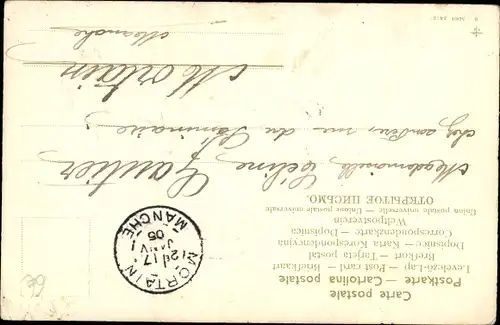 Carte postale
Postkarte — Cartolina postale
Levelező-Lap — Post card — Briefkaart
Brefkort — Tarjeta postal
Dopisnice — Karta Korespondencyjna
Correspondenzkarte — Dopisnica
Weltpostverein
Union postale universelle — Unione postale universale
ОТКРЫТОЕ ПИСЬМО.
Mademoiselle Céline Gautier
chez son Père, rue du Séminaire
Mortain
Manche
MORTAIN
17
JANV
05
MANCHE